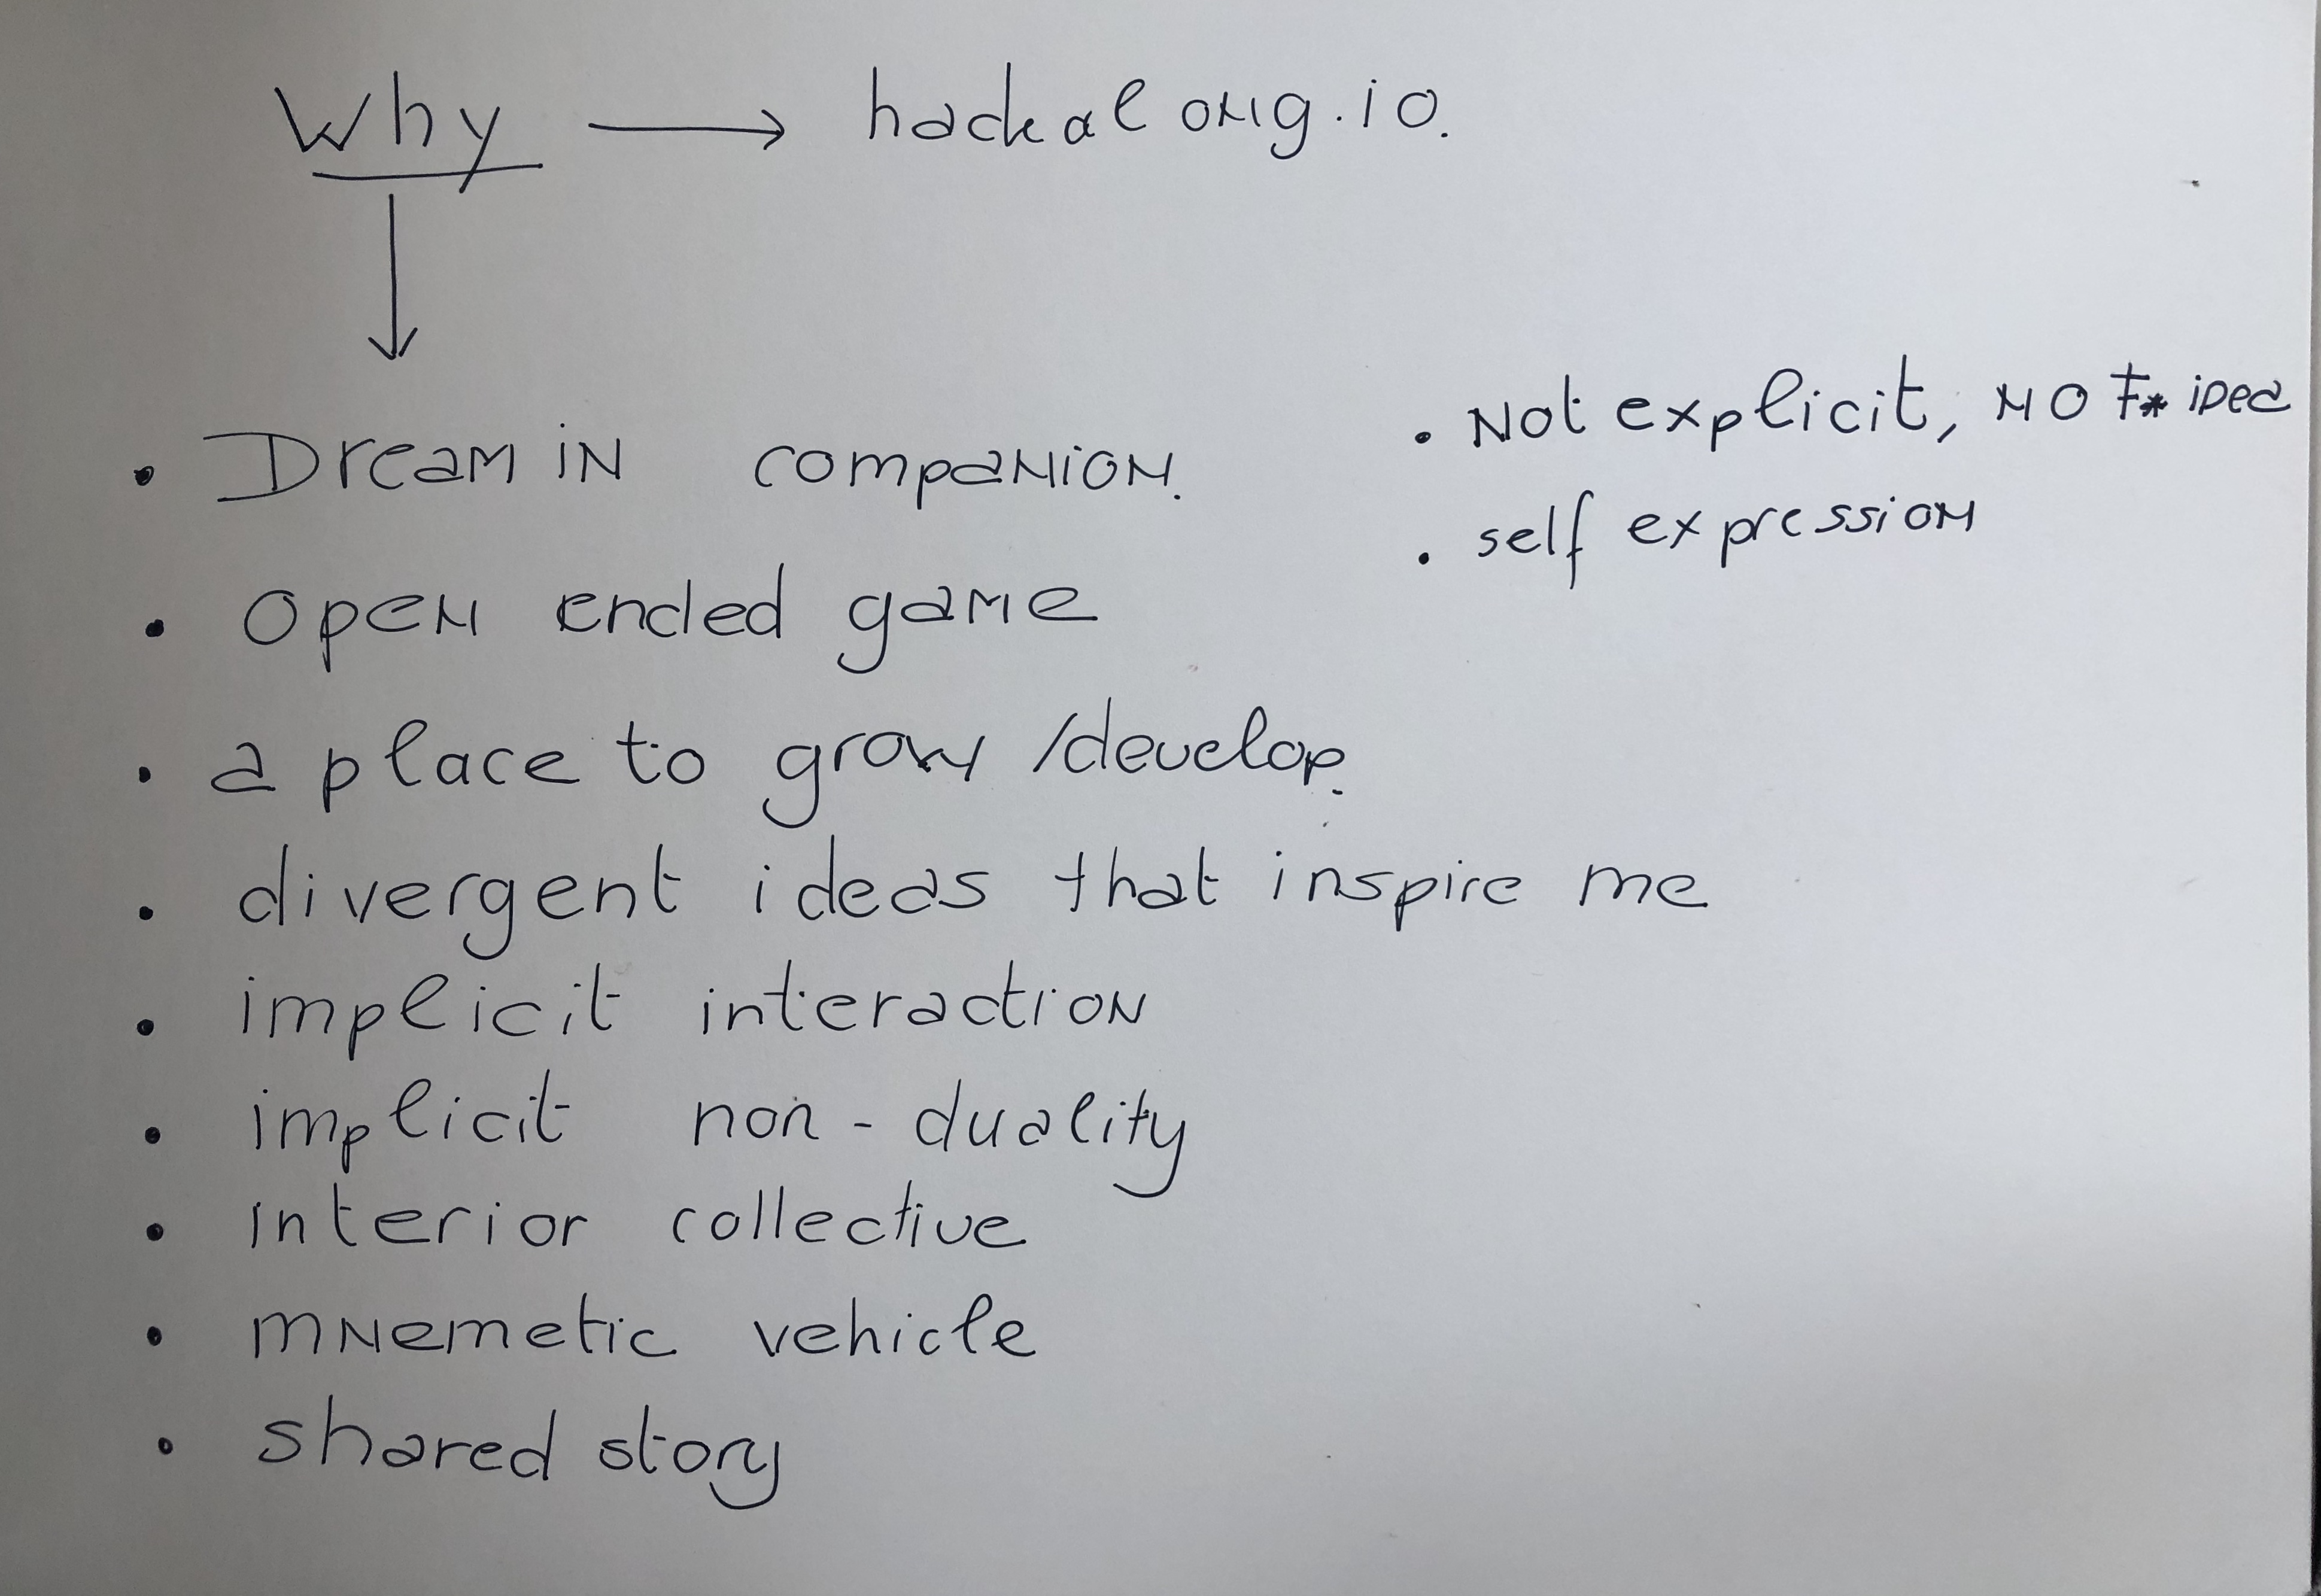 Why → hackalong.io.
• Dream in companion.
• open ended game
• a place to grow /develop.
• divergent ideas that inspire me
• implicit interaction
• implicit non-duality
• interior collective
• mnemetic vehicle
• shared story
• Not explicit, no idea
• self expression